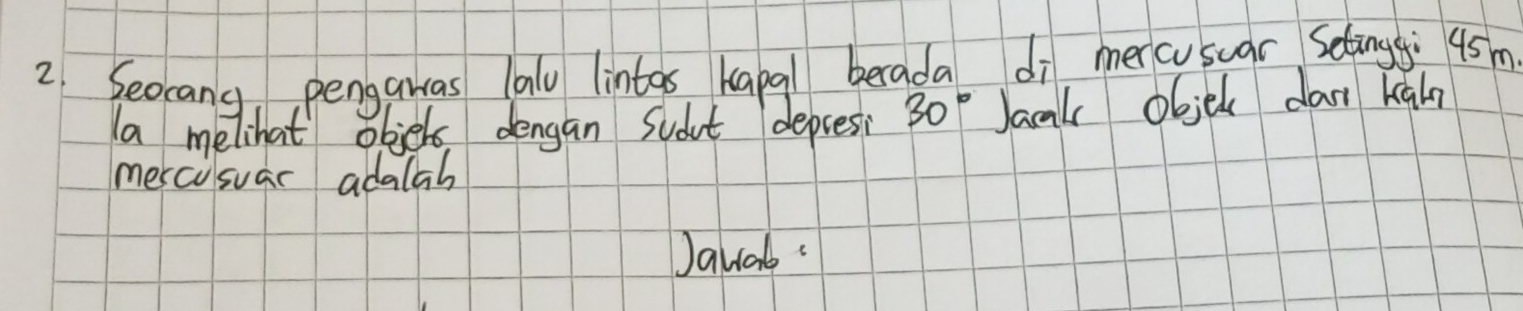 2. Seorang pengawas lalu lintas kapal berada di mercusuar Setinggi 45m.
Ia melihat objek dengan sudut depresi 30° Jarak Objek dari kaki
mercusuar adalah
Jawab :